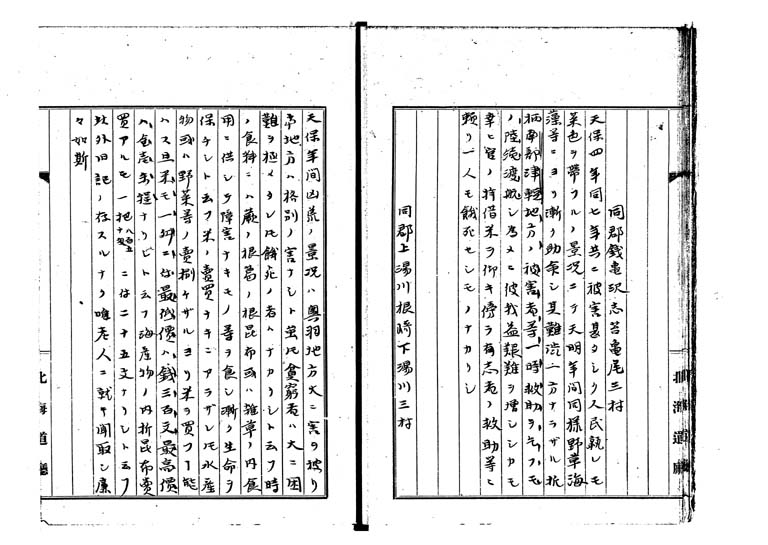 同郡錢亀沢志苔亀尾三村
天保四年同七年共ニ被害甚タシク人民孰レモ
菜色ヲ帶フルノ景況ニテ天明年間同様野草海
藻等ニヨリ漸ク助命シ其難渋一方ナラザル折
柄南部津輕地方ノ被害者等一時救助ヲ乞フモ
ノ陸続渡航シ為メニ彼我益艱難ヲ増シシカモ
幸ヒ官ノ拝借米ヲ仰キ傍ラ有志者ノ救助等ニ
頼リ一人モ餓死セシモノナカリシ
同郡上湯川根崎下湯川三村
北海道廳
天保年間凶荒ノ景況ハ奥羽地方大ニ害ヲ被リ
本地方ハ格別ノ害ナシト雖モ貧窮者ハ大ニ困
難ヲ極メタレ𪜈餓死ノ者ハナカリシト云フ時
ノ食物ニハ蕨ノ根葛ノ根昆布或ハ雑草ノ内食
用ニ供シテ障害ナキモノ等ヲ食シ漸ク生命ヲ
保チシト云フ米ノ賣買ナキニアラザレ𪜈水産
物或ハ野菜等ノ賣捌ケザルヨリ米ヲ買フ一能
ハス且米モ一升ニ付最低價ハ錢三百文最高價
買アルモ一把 ニ付二十五文ナリシト云フ
此外旧記ノ存スルナク唯老人ニ就テ聞取シ廉
々如斯
北海道廳